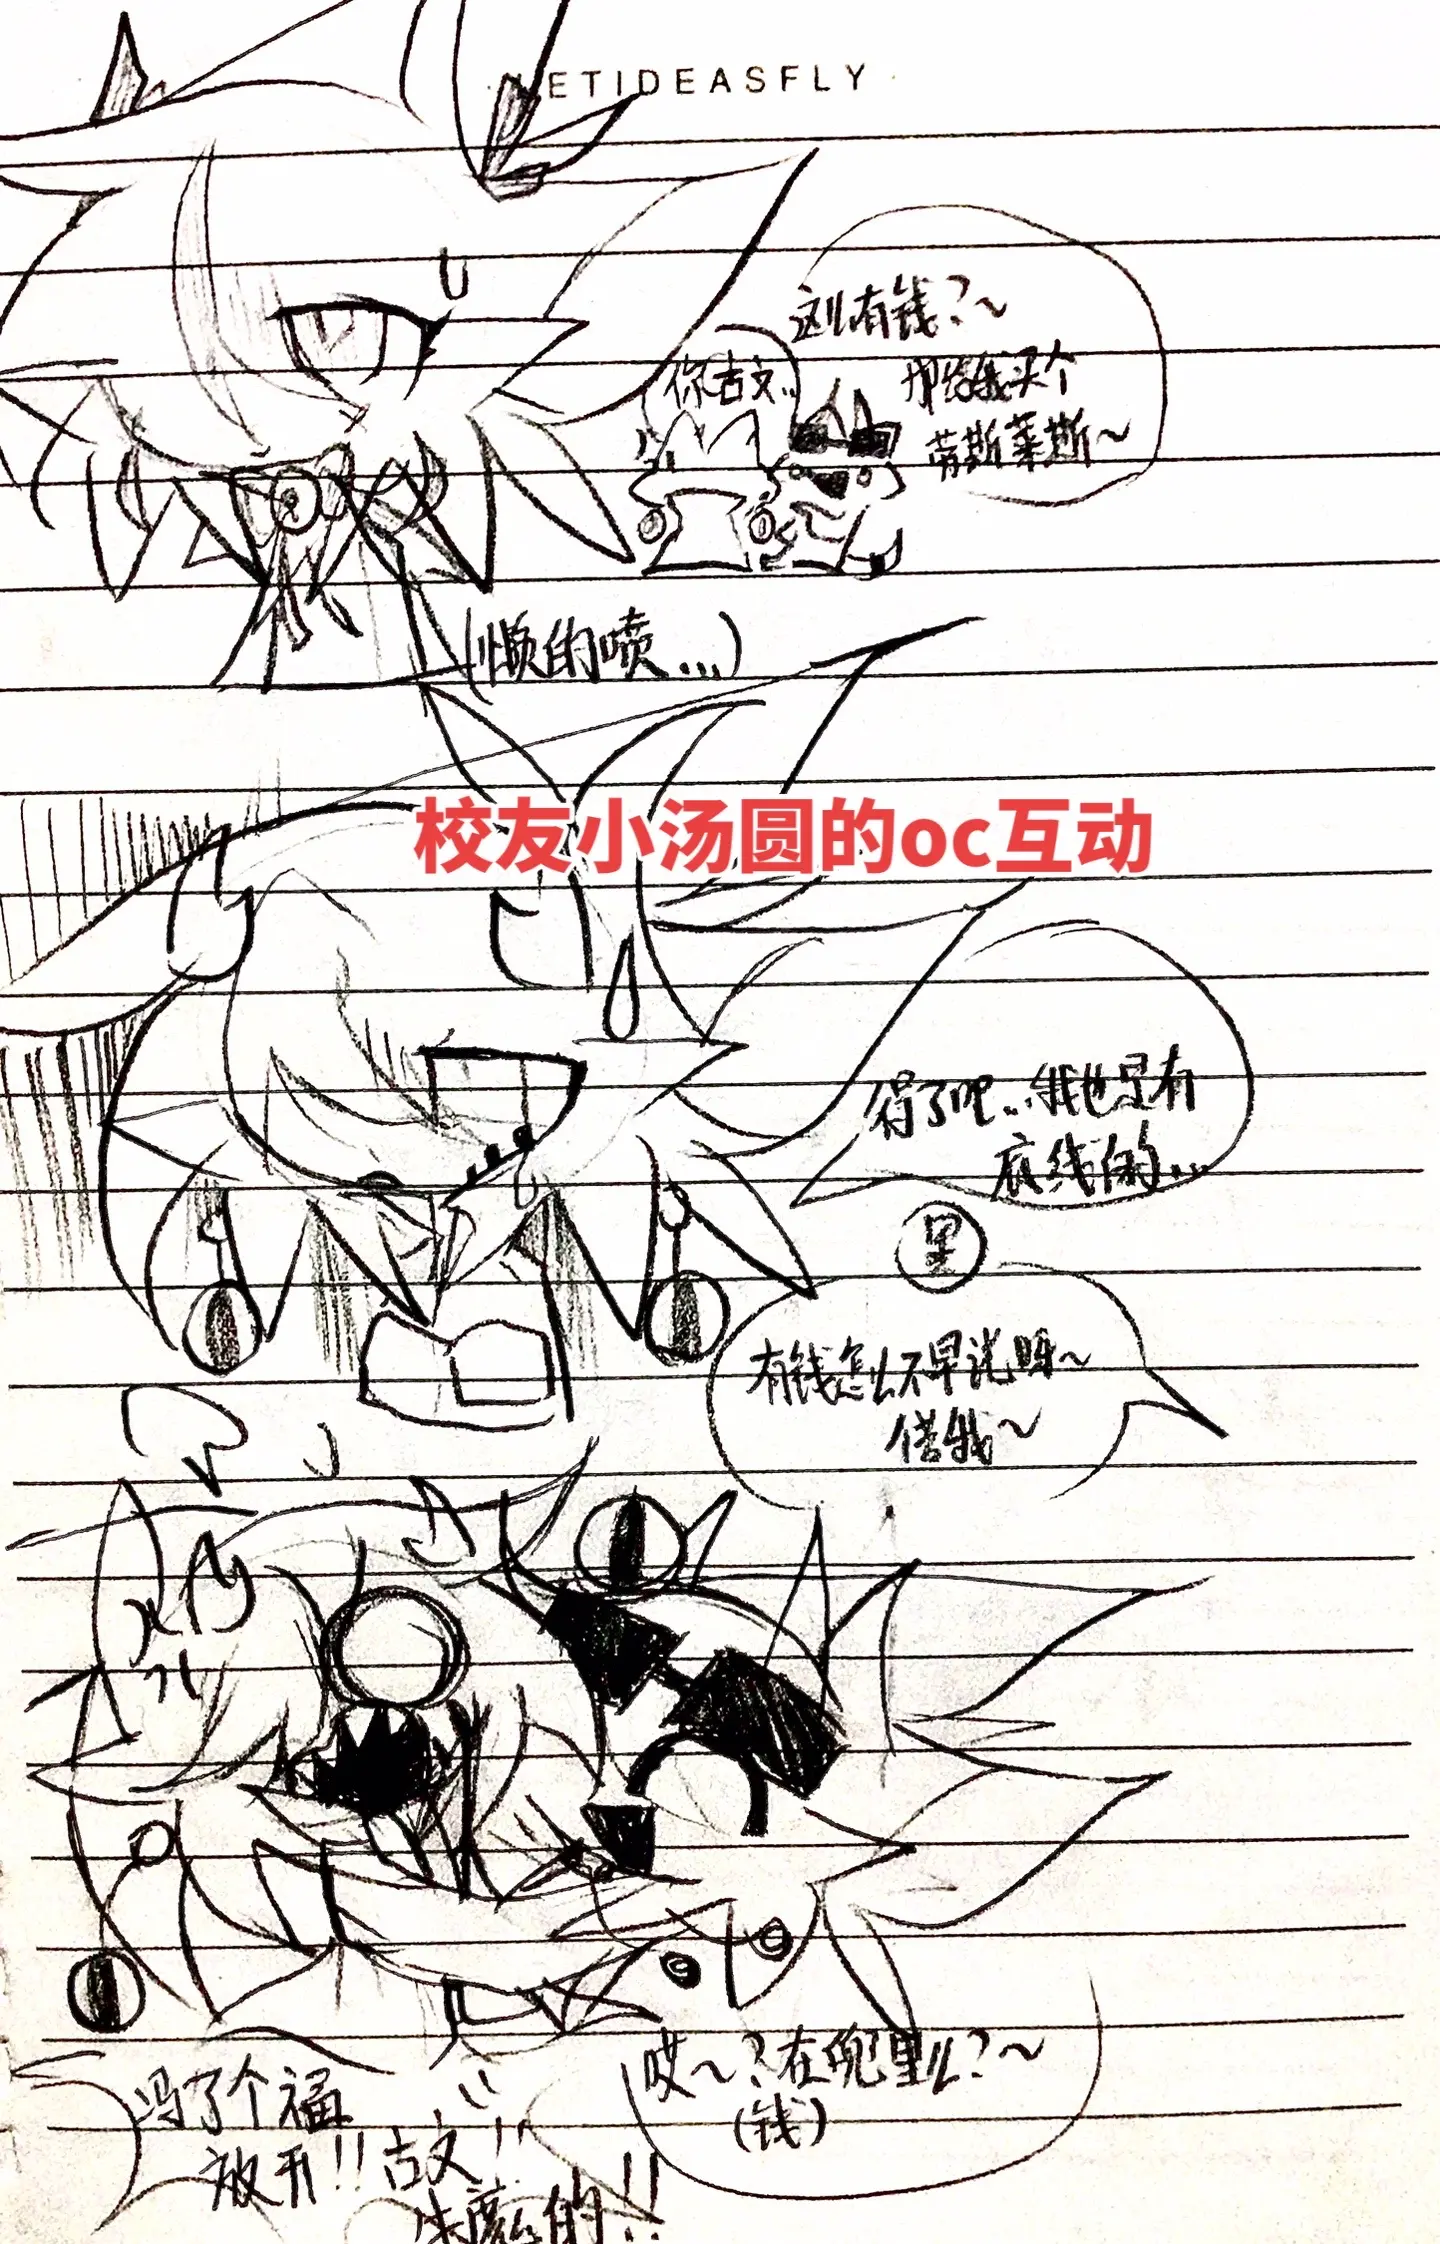 LETIDEASFLY
这儿有钱？~
你古文...
那给我买个
劳斯莱斯~
(懒的喷...)
校友小汤圆的oc互动
得了吧...我也是有
底线的...
里
有钱怎么不早说呀~
借我~
哎~？在兜里儿？~
(钱)
冯了个福
放开!!古文!!
的!!